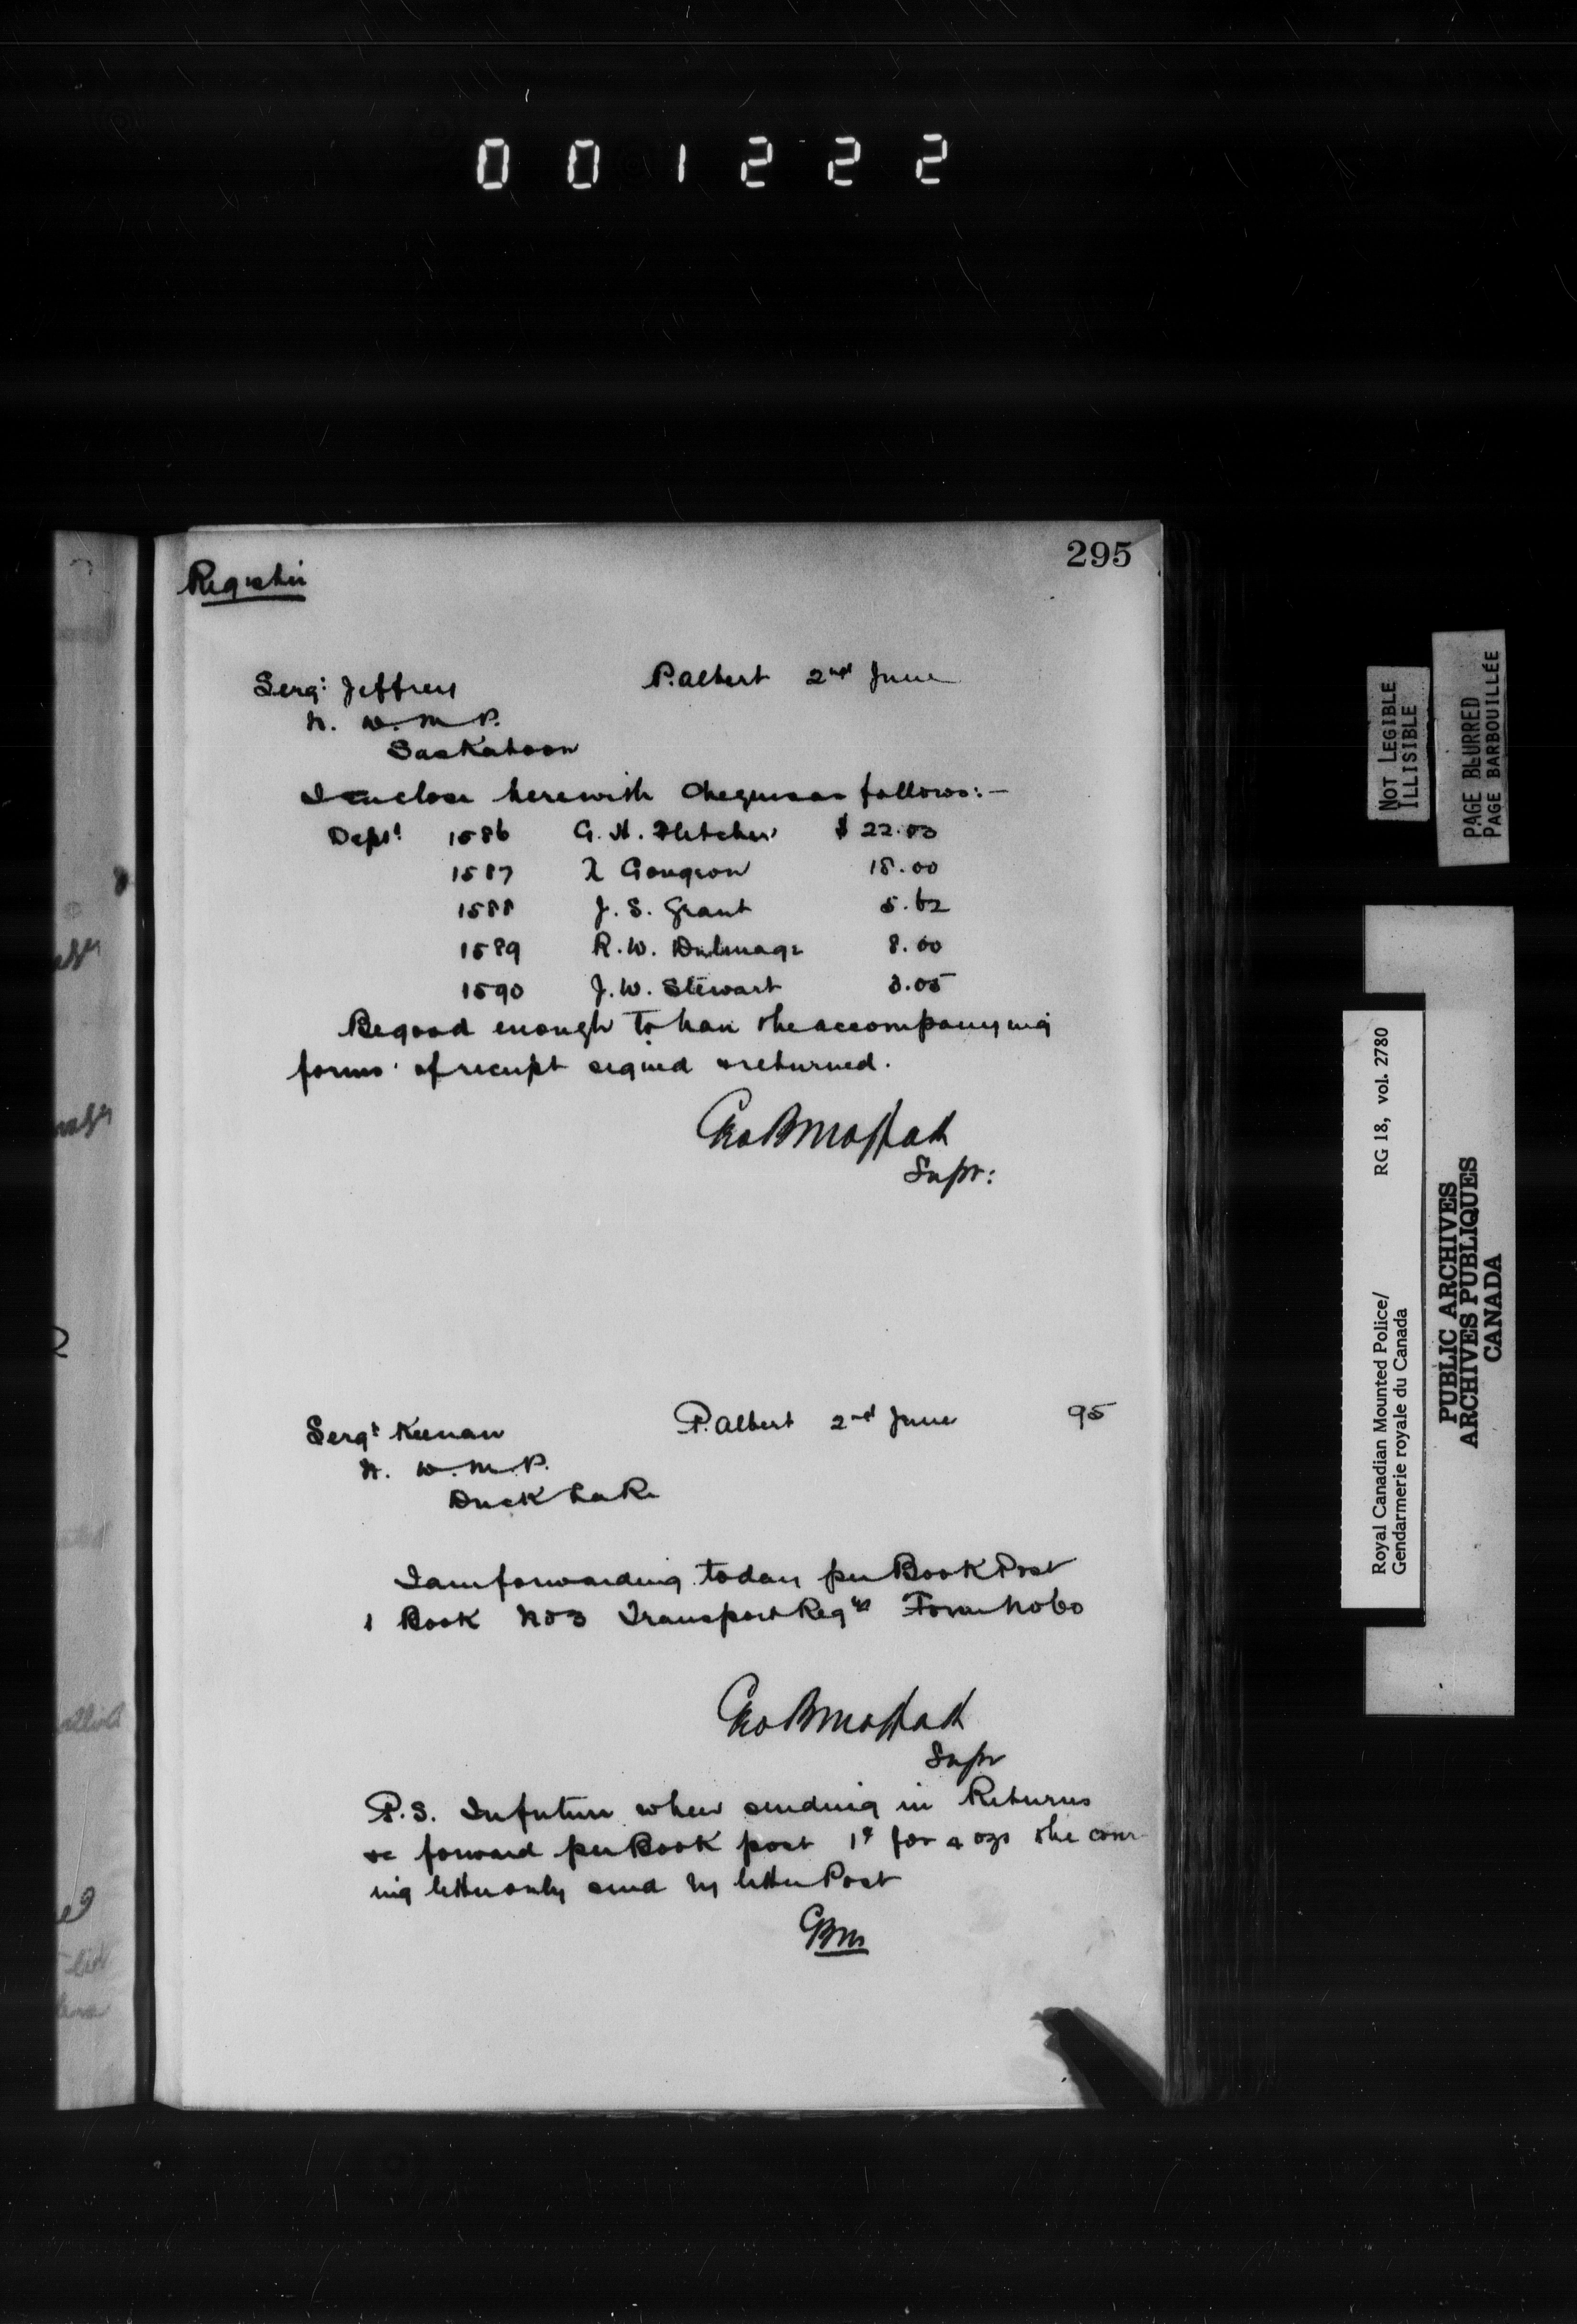 001222
295
Register
Sergt Jeffrey P. Albert 2nd June
N. W. M. P.
Saskatoon
I enclose herewith cheques as follows:-
Dept 1586 G. H. Fletcher $ 22.03
1587 Gougeon 18.00
1588 J. S. Grant 5.62
1589 R. W. Dulmage 8.00
1590 J. W. Stewart 3.05
Be good enough to have the accompanying
forms of receipt signed & returned.
Geo B Moffatt
Supt:
Sergt Keenan P. Albert 2nd June 95
N. W. M. P.
Duck Lake
I am forwarding today per Book Post
1 Book No 3 Transport Reqns Form No 60
Geo B Moffatt
Supt
P.S. In future when sending in Returns
&c forward per Book post 1¢ for 4 ozs the cover-
ing letter only send by letter Post
GBM
NOT LEGIBLE
ILLISIBLE
PAGE BLURRED
PAGE BARBOUILLÉE
Royal Canadian Mounted Police/ RG 18, vol. 2780
Gendarmerie royale du Canada
PUBLIC ARCHIVES
ARCHIVES PUBLIQUES
CANADA